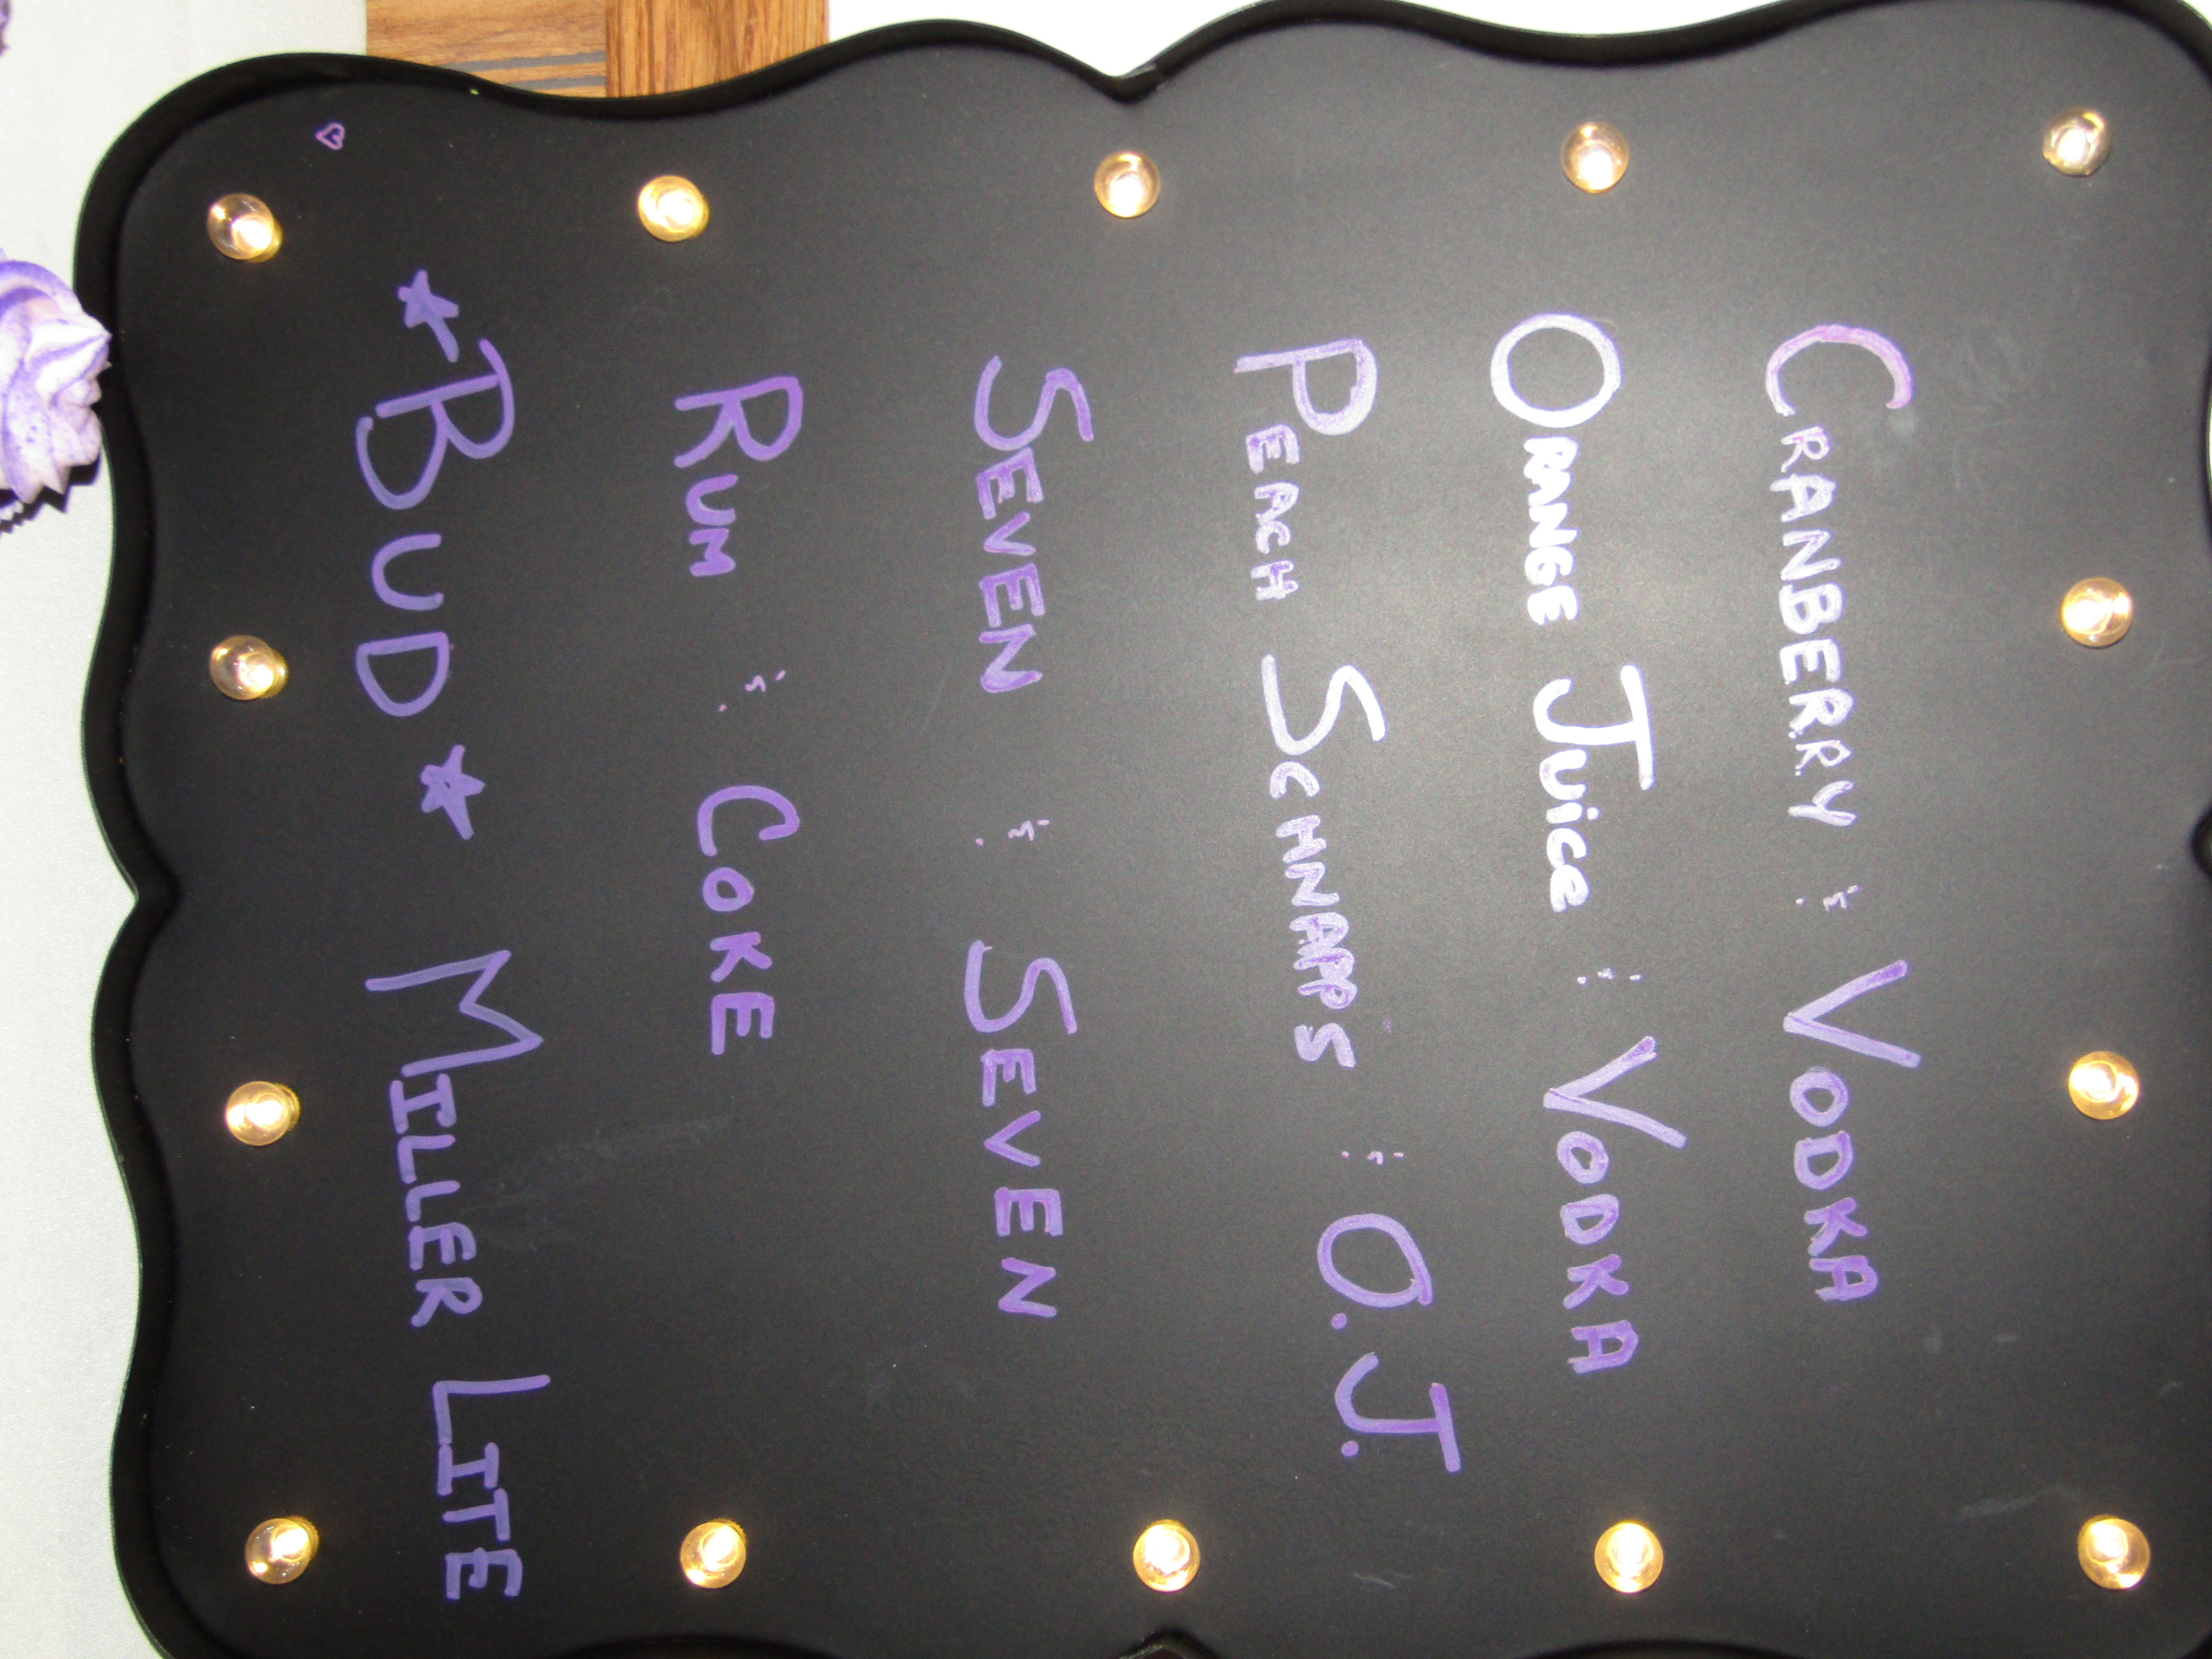 CRANBERRY & VODKA
ORANGE JUICE & VODKA
PEACH SCHNAPPS & O.J.
SEVEN & SEVEN
RUM & COKE
★BUD★ MILLER LITE